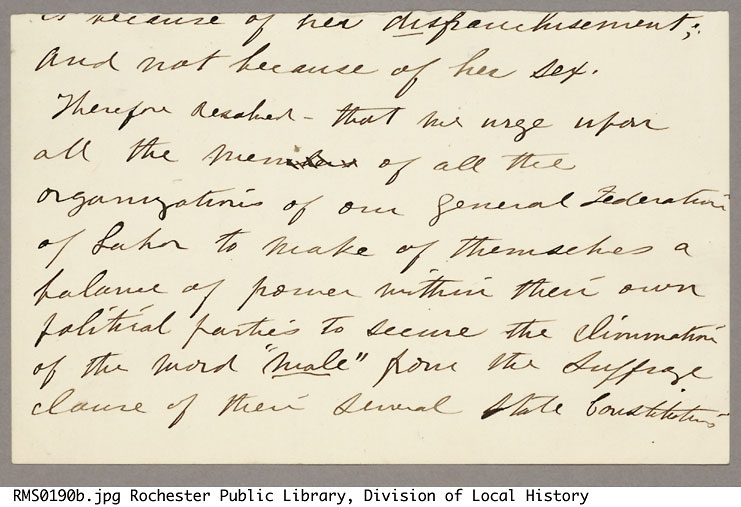 is because of her disfranchisement;
and not because of her sex.
Therefore Resolved - that we urge upon
all the men of all the
organizations of our general Federation
of Labor to make of themselves a
balance of power within their own
political parties to secure the elimination
of the word "male" from the suffrage
clause of their several State Constitutions
RMS0190b.jpg Rochester Public Library, Division of Local History